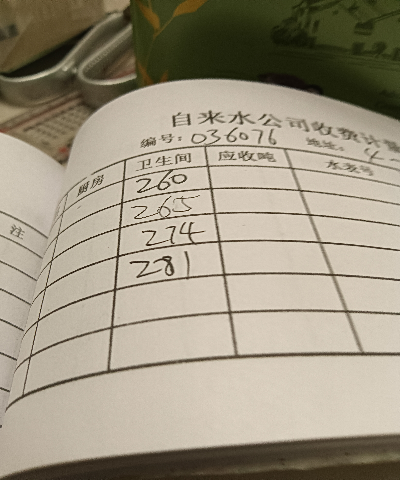 自来水公司收费计量
编号: 036076 地址: 4-
厨房 卫生间 应收吨 水表号
260
265
274
281
注